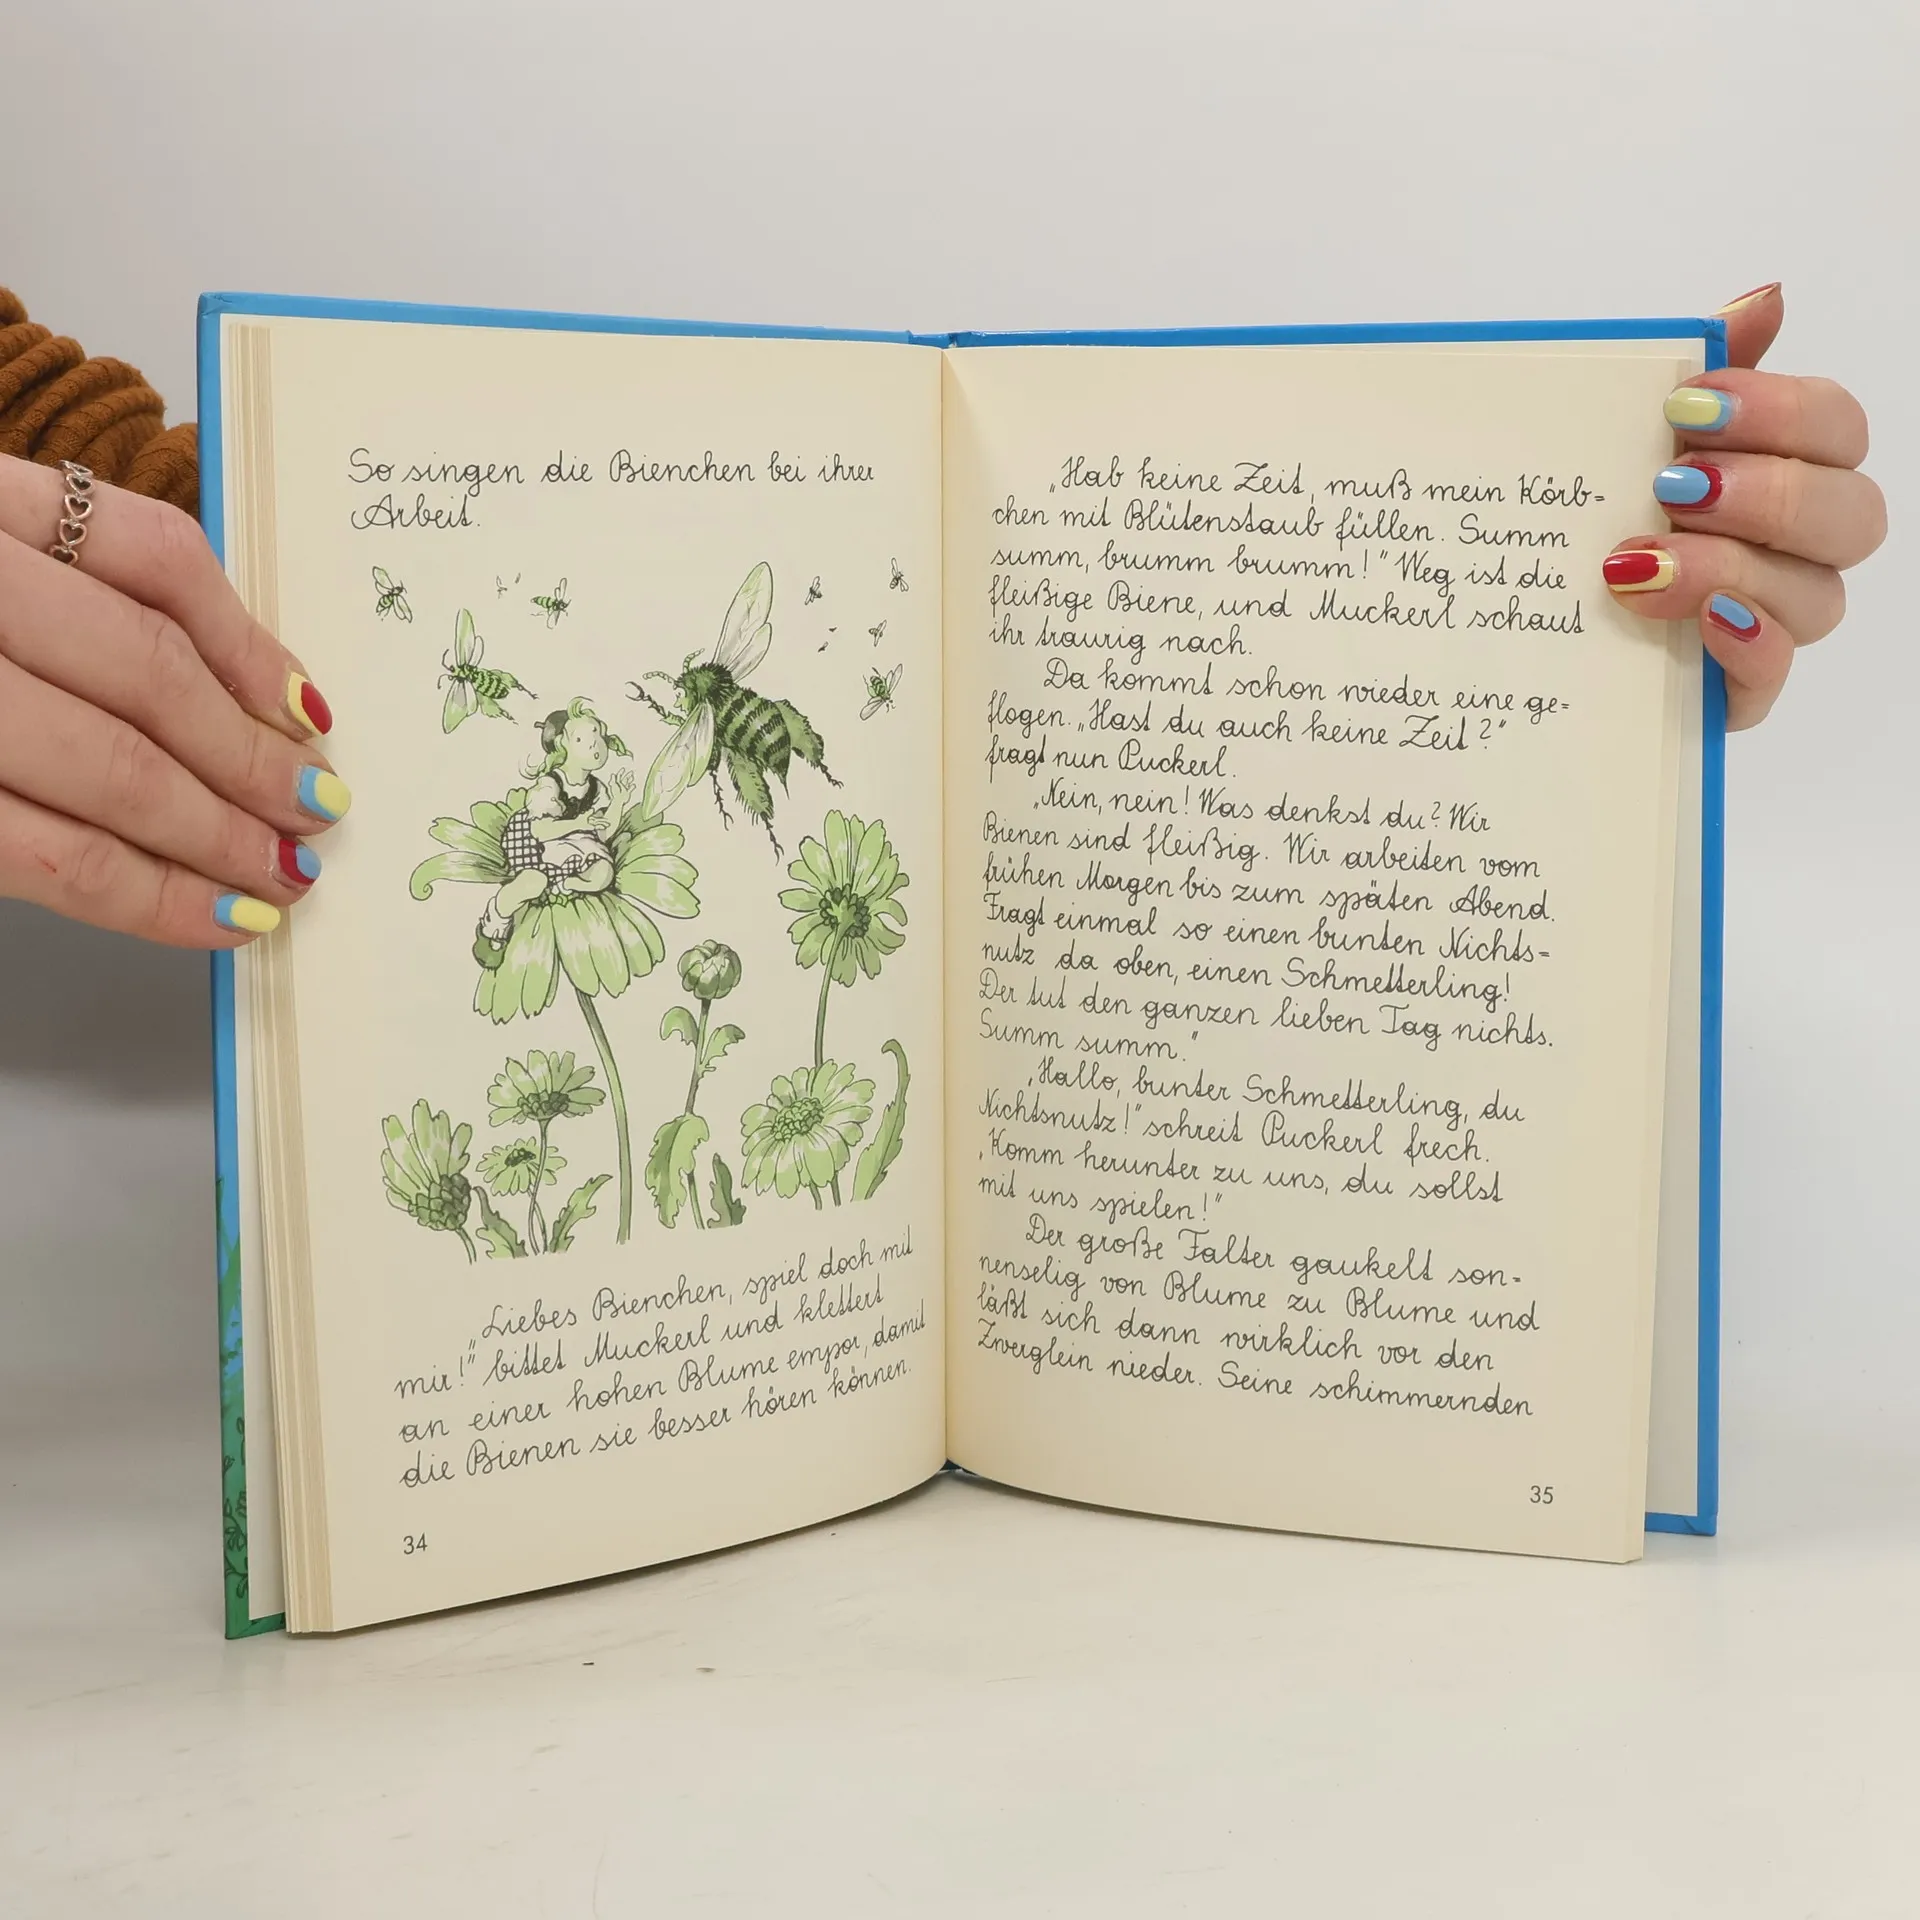 So singen die Bienchen bei ihrer
Arbeit.
„Liebes Bienchen, spiel doch mit
mir!" bittet Muckerl und klettert
an einer hohen Blume empor, damit
die Bienen sie besser hören können.
34
„Hab keine Zeit, muß mein Körb=
chen mit Blütenstaub füllen. Summ
summ, brumm brumm!" Weg ist die
fleißige Biene, und Muckerl schaut
ihr traurig nach.
Da kommt schon wieder eine ge=
flogen. „Hast du auch keine Zeit?"
fragt nun Puckerl.
„Nein, nein! Was denkst du? Wir
Bienen sind fleißig. Wir arbeiten vom
frühen Morgen bis zum späten Abend.
Fragt einmal so einen bunten Nichts=
nutz da oben, einen Schmetterling!
Der tut den ganzen lieben Tag nichts.
Summ summ."
„Hallo, bunter Schmetterling, du
Nichtsnutz!" schreit Puckerl frech.
„Komm herunter zu uns, du sollst
mit uns spielen!"
Der große Falter gaukelt son=
nenselig von Blume zu Blume und
läßt sich dann wirklich vor den
Zwerglein nieder. Seine schimmernden
35